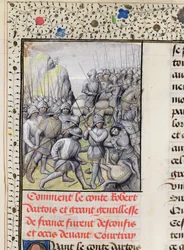 Comment le conte Robert
dartois et grant gentillesse
de france furent desconfis
et occis deuant Courtray
Dant le conte dartois